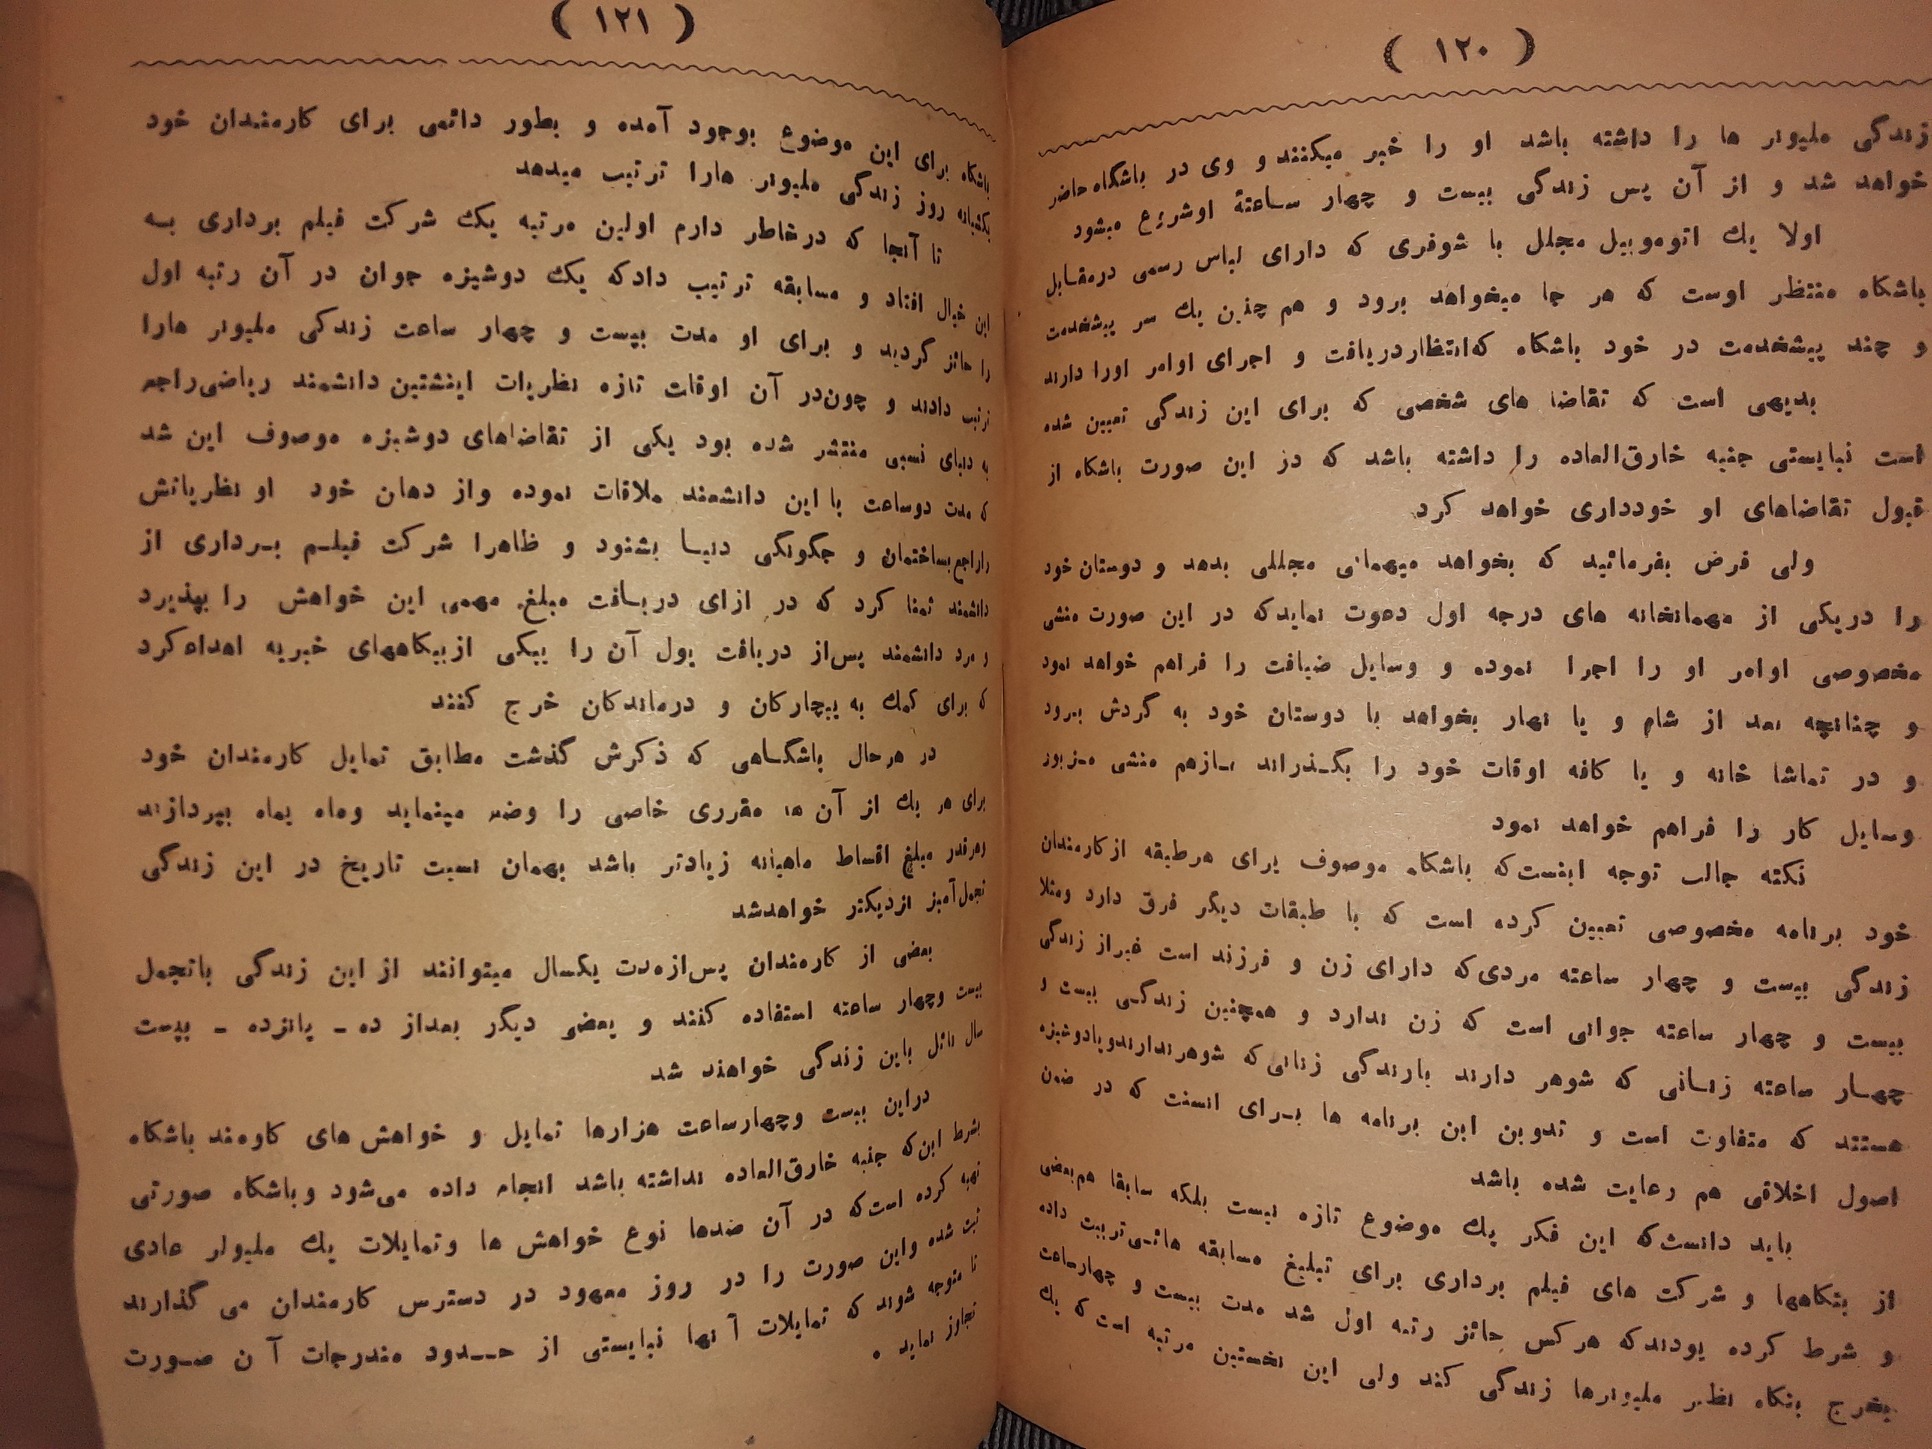 ( ۱۲۰ )
زندگی ملیونر ها را داشته باشد او را خبر میکنند و وی در باشگاه حاضر
خواهد شد و از آن پس زندگی بیست و چهار ساعتهٔ او شروع میشود
اولا یك اتوموبیل مجلل با شوفری که دارای لباس رسمی درمقابل
باشگاه منتظر اوست که هر جا میخواهد برود و هم چنین یك سر پیشخدمت
و چند پیشخدمت در خود باشگاه که‌انتظاردریافت و اجرای اوامر اورا دارند
بدیهی است که تقاضا های شخصی که برای این زندگی تعیین شده
است نبایستی جنبه خارق‌العاده را داشته باشد که در این صورت باشگاه از
قبول تقاضاهای او خودداری خواهد کرد
ولی فرض بفرمائید که بخواهد میهمانی مجللی بدهد و دوستان خود
را دریکی از مهمانخانه های درجه اول دعوت نمایدکه در این صورت منشی
مخصوصی اوامر او را اجرا نموده و وسایل ضیافت را فراهم خواهد نمود
و چنانچه بعد از شام و یا نهار بخواهد با دوستان خود به گردش برود
و در تماشا خانه و یا کافه اوقات خود را بگـذراند بـازهم منشی مـزبور
وسایل کار را فراهم خواهد نمود
نکته جالب توجه اینست‌که باشگاه موصوف برای هرطبقه ازکارمندان
خود برنامه مخصوصی تعیین کرده است که با طبقات دیگر فرق دارد ومثلا
زندگی بیست و چهار ساعته مردی‌که دارای زن و فرزند است غیراز زندگی
بیست و چهار ساعته جوانی است که زن ندارد و همچنین زندگـی بیست و
چهـار ساعته زنـانی که شوهر دارند بازندگی زنانی‌که شوهرندارندویادوشیزه
هستند که متفاوت است و تدوین این برنامه ها بـرای انست که در ضمن
اصول اخلاقی هم رعایت شده باشد
باید دانست‌که این فکر یك موضوع تازه نیست بلکه سابقا هم‌بعضی
از بنگاهها و شرکت های فیلم برداری برای تبلیغ مسابقه هائـی‌تربیت داده
و شرط کرده بودندکه هرکس حائز رتبه اول شد مدت بیست و چهارساعت
بخرج بنگاه نظیر ملیونرها زندگی کند ولی این نخستین مرتبه است که یك
( ۱۲۱ )
باشگاه برای این موضوع بوجود آمده و بطور دائمی برای کارمندان خود
یکشبانه روز زندگی ملیونر هارا ترتیب میدهد
تا آنجا که درخاطر دارم اولین مرتبه یک شرکت فیلم برداری بـه
این خیال افتاد و مسابقه ترتیب دادکه یک دوشیزه جوان در آن رتبه اول
را حائز گردید و برای او مدت بیست و چهار ساعت زندگی ملیونر هارا
ترتیب دادند و چون‌در آن اوقات تازه نظریات اینشتین دانشمند ریاضی‌راجع
به دنیای نسبی منتشر شده بود یکی از تقاضاهای دوشیزه موصوف این شد
که مدت دوساعت با این دانشمند ملاقات نموده واز دهان خود او نظریاتش
راراجع‌بساختمان و چگونگی دنیـا بشنود و ظاهرا شرکت فیلـم بـرداری از
دانشمند تمنا کرد که در ازای دریـافت مبلغ مهمی این خواهش را بپذیرد
و مرد دانشمند پس‌از دریافت پول آن را بیکی ازبیکاههای خیریه اهداءکرد
که برای کمك به بیچارکان و درماندکان خرج کنند
در هرحال باشگـاهی که ذکرش گذشت مطابق تمایل کارمندان خود
برای هر یك از آن ها مقرری خاصی را وضع مینماید وماه بماه بپردازند
وهرقدر مبلغ اقساط ماهیانه زیادتر باشد بهمان نسبت تاریخ در این زندگی
تجمل‌آمیز نزدیکتر خواهدشد
بعضی از کارمندان پس‌ازمدت یکسال میتوانند از این زندگی باتجمل
بیست وچهار ساعته استفاده کنند و بعضی دیگر بعداز ده ـ پانزده ـ بیست
سال نائل باین زندگی خواهند شد
دراین بیست وچهارساعت هزارها تمایل و خواهش های کاومند باشگاه
بشرط این‌که جنبه خارق‌العاده نداشته باشد انجام داده می‌شود وباشگاه صورتی
تهیه کرده است‌که در آن صدها نوع خواهش ها وتمایلات یك ملیونر عادی
ثبت شده واین صورت را در روز معهود در دسترس کارمندان می گذارند
تا متوجه شوند که تمایلات آنها نبایستی از حــدود مندرجات آن صـورت
تجاوز نماید .